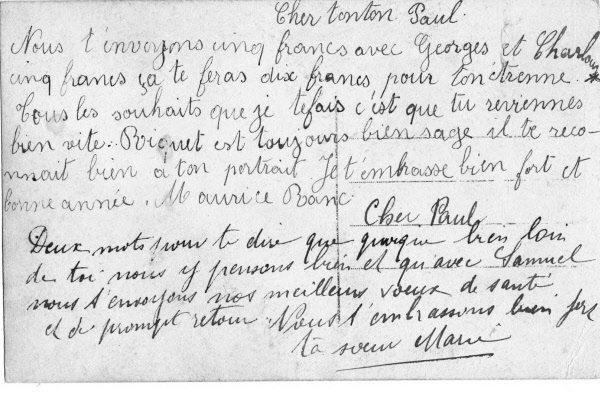 Cher tonton Paul.
Nous t'envoyons cinq francs avec Georges et Charlous
cinq francs ça te feras dix francs pour ton étrenne.
Tous les souhaits que je te fais c'est que tu reviennes
bien vite. Riquet est toujours bien sage il te reco-
nnait bien à ton portrait Je t'embrasse bien fort et
bonne année. Maurice Ranc
Cher Paul
Deux mots pour te dire que quoique bien loin
de toi nous y pensons bien et qu'avec Samuel
nous t'envoyons nos meilleurs voeux de santé
et de prompt retour. Nous t'embrassons bien fort
ta soeur Marie